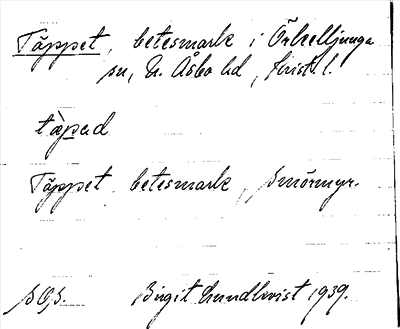 Täppet, betesmark i Örkelljunga
sn, N. Åsbo hd, Krist. l.
tàpəd
Täppet betesmark, Smörmyr.
Birgit Lundkvist 1939.